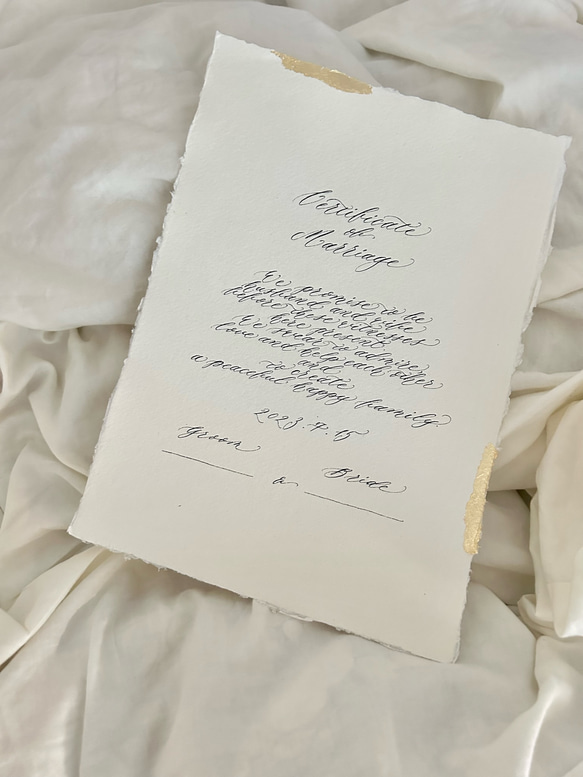 Certificate
of
Marriage
We promise to be
husband and wife
before these witnesses
here present.
We swear to admire,
love and help each other
and
to create
a peaceful happy family.
2023.9.15
Groom
&
Bride